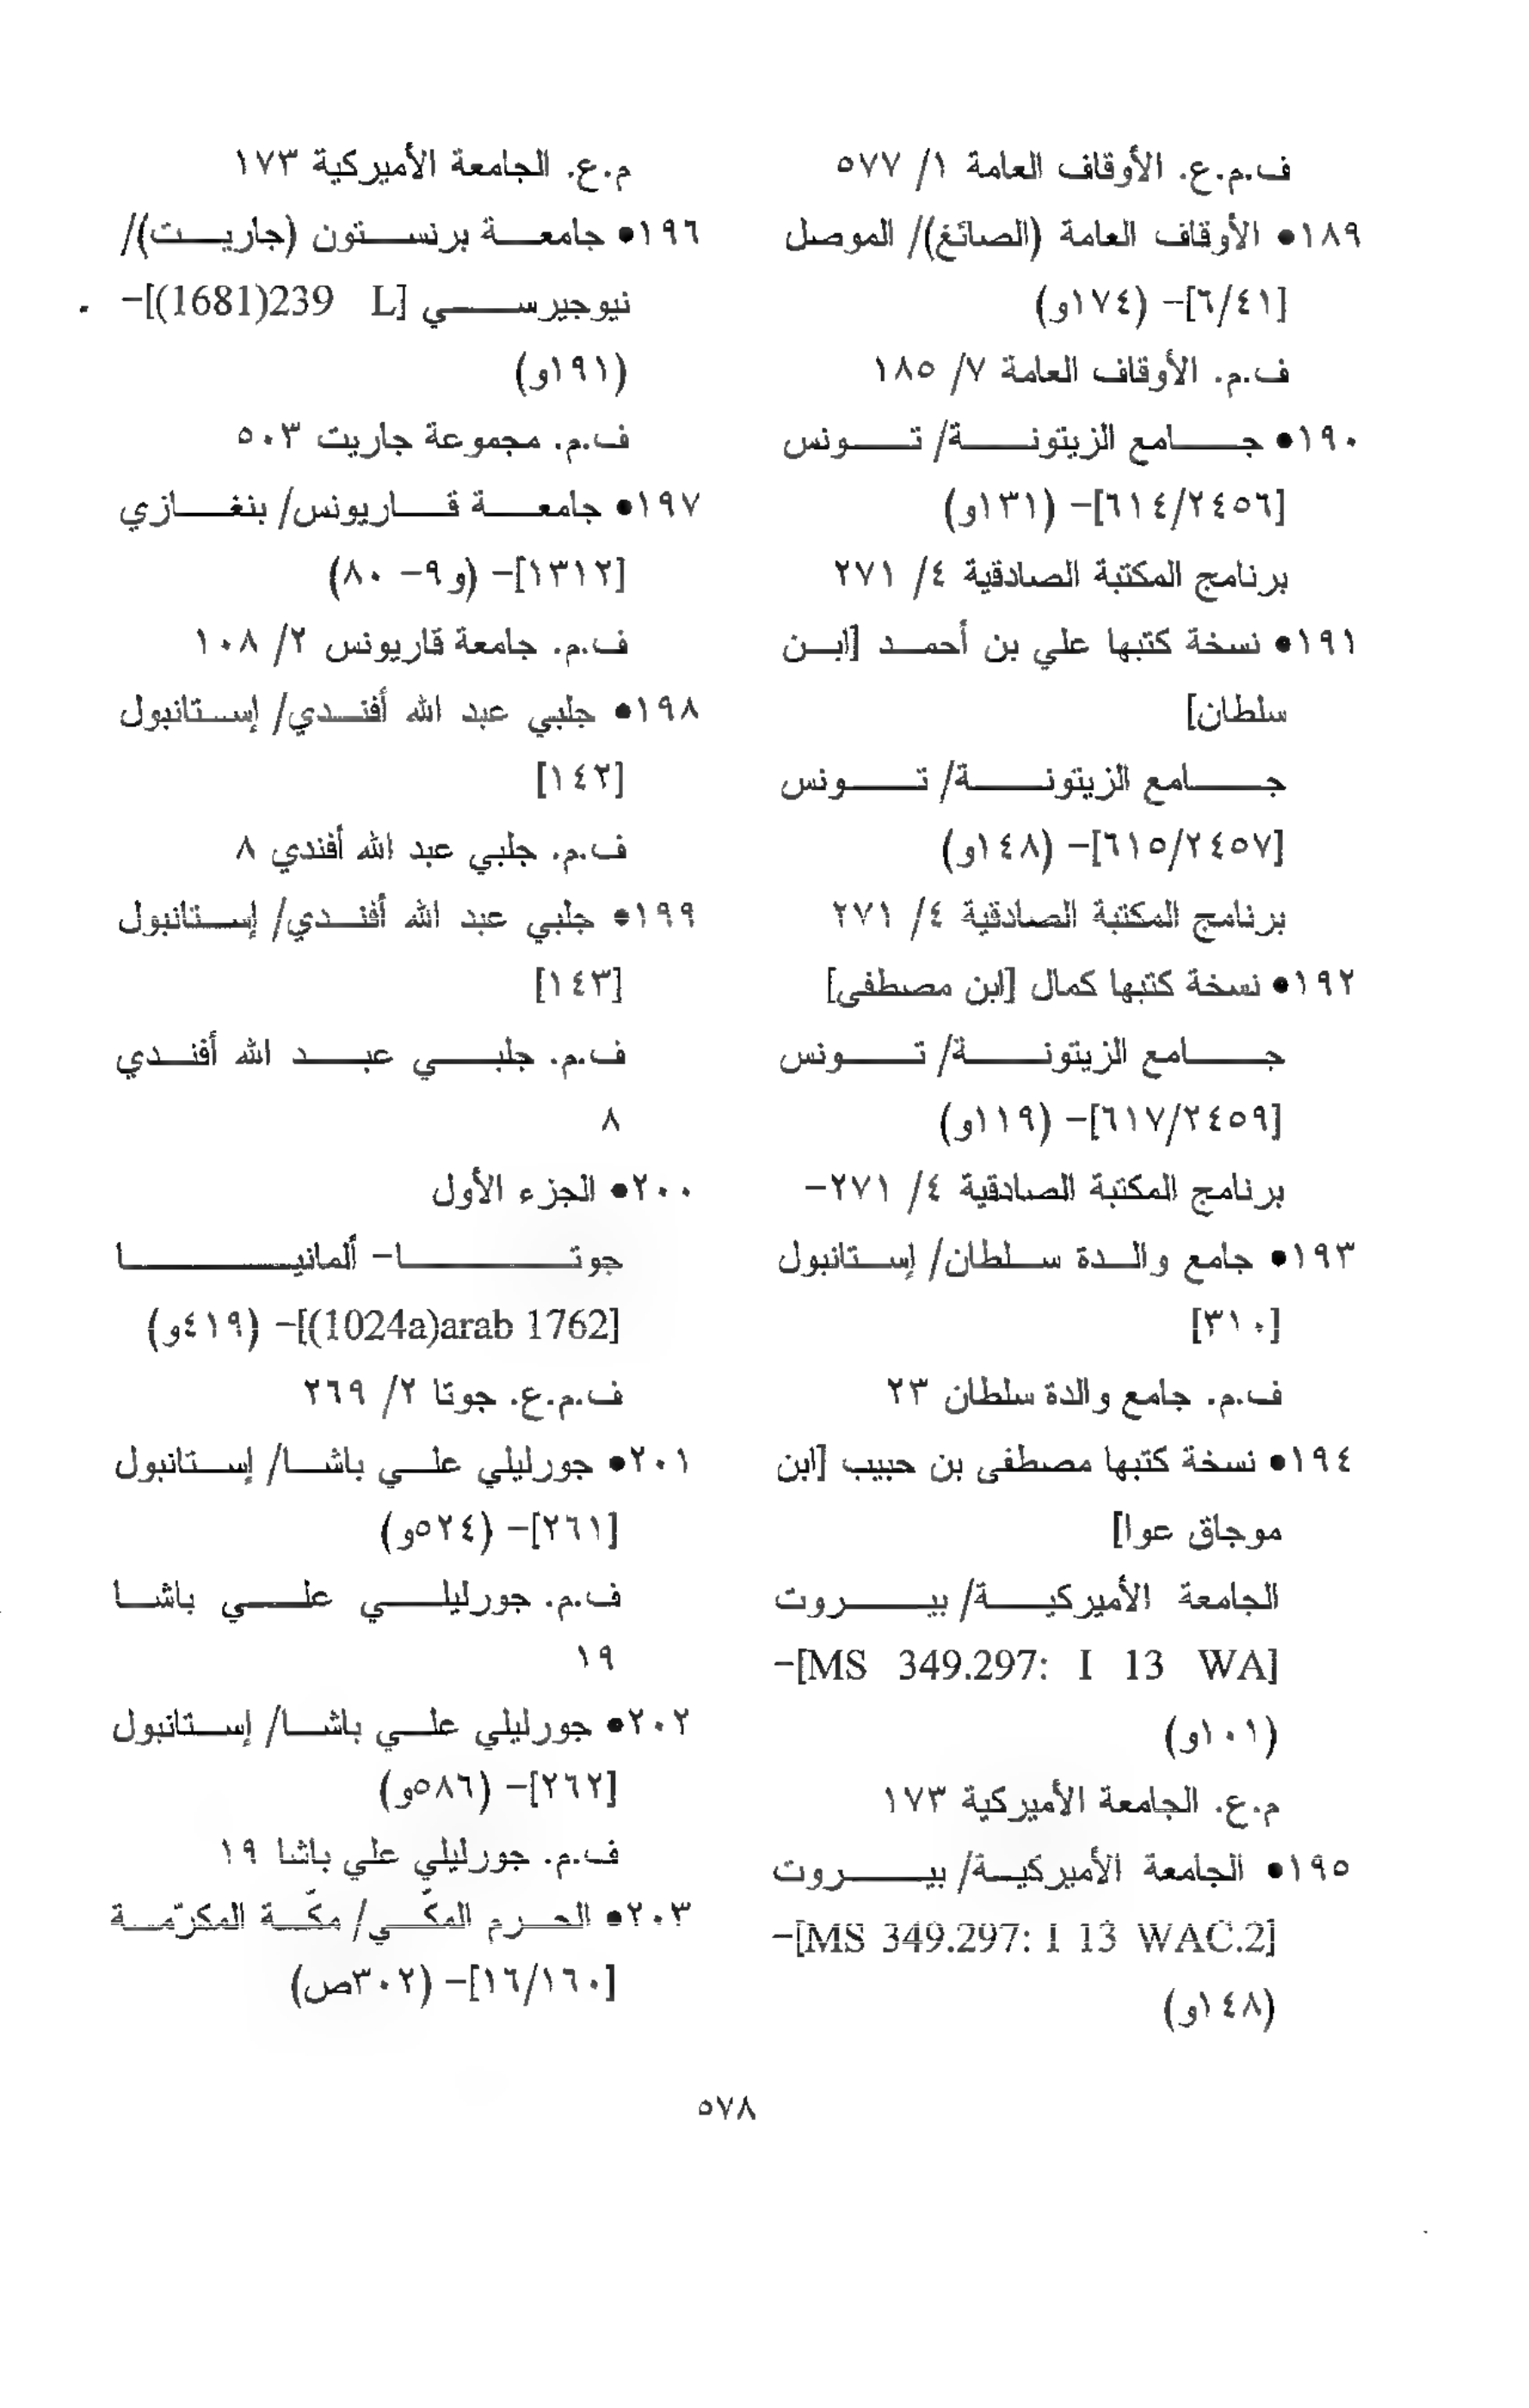 ف.م.ع. الأوقاف العامة ١/ ٥٧٧
١٨٩• الأوقاف العامة (الصائغ)/ الموصل
[٦/٤١]- (١٧٤و)
ف.م. الأوقاف العامة ٧/ ١٨٥
١٩٠• جامع الزيتونة/ تونس
[٦١٤/٢٤٥٦]- (١٣١و)
برنامج المكتبة الصادقية ٤/ ٢٧١
١٩١• نسخة كتبها علي بن أحمد [ابن
سلطان]
جامع الزيتونة/ تونس
[٦١٥/٢٤٥٧]- (١٤٨و)
برنامج المكتبة الصادقية ٤/ ٢٧١
١٩٢• نسخة كتبها كمال [ابن مصطفى]
جامع الزيتونة/ تونس
[٦١٧/٢٤٥٩]- (١١٩و)
برنامج المكتبة الصادقية ٤/ ٢٧١-
١٩٣• جامع والدة سلطان/ إستانبول
[٣١٠]
ف.م. جامع والدة سلطان ٢٣
١٩٤• نسخة كتبها مصطفى بن حبيب [ابن
موجاق عوا]
الجامعة الأميركية/ بيروت
[MS 349.297: I 13 WA]-
(١٠١و)
م.ع. الجامعة الأميركية ١٧٣
١٩٥• الجامعة الأميركية/ بيروت
[MS 349.297: I 13 WAC.2]-
(١٤٨و)
م.ع. الجامعة الأميركية ١٧٣
١٩٦• جامعة برنستون (جاريت)/
نيوجيرسي [L 239(1681)]-
(١٩١و)
ف.م. مجموعة جاريت ٥٠٣
١٩٧• جامعة قاريونس/ بنغازي
[١٣١٢]- (و٩- ٨٠)
ف.م. جامعة قاريونس ٢/ ١٠٨
١٩٨• جلبي عبد الله أفندي/ إستانبول
[١٤٢]
ف.م. جلبي عبد الله أفندي ٨
١٩٩• جلبي عبد الله أفندي/ إستانبول
[١٤٣]
ف.م. جلبي عبد الله أفندي
٨
٢٠٠• الجزء الأول
جوتا- ألمانيا
[(1024a)arab 1762]- (٤١٩و)
ف.م.ع. جوتا ٢/ ٢٦٩
٢٠١• جورليلي علي باشا/ إستانبول
[٢٦١]- (٥٢٤و)
ف.م. جورليلي علي باشا
١٩
٢٠٢• جورليلي علي باشا/ إستانبول
[٢٦٢]- (٥٨٦و)
ف.م. جورليلي علي باشا ١٩
٢٠٣• الحرم المكّي/ مكّة المكرّمة
[١٦/١٦٠]- (٣٠٢ص)
٥٧٨